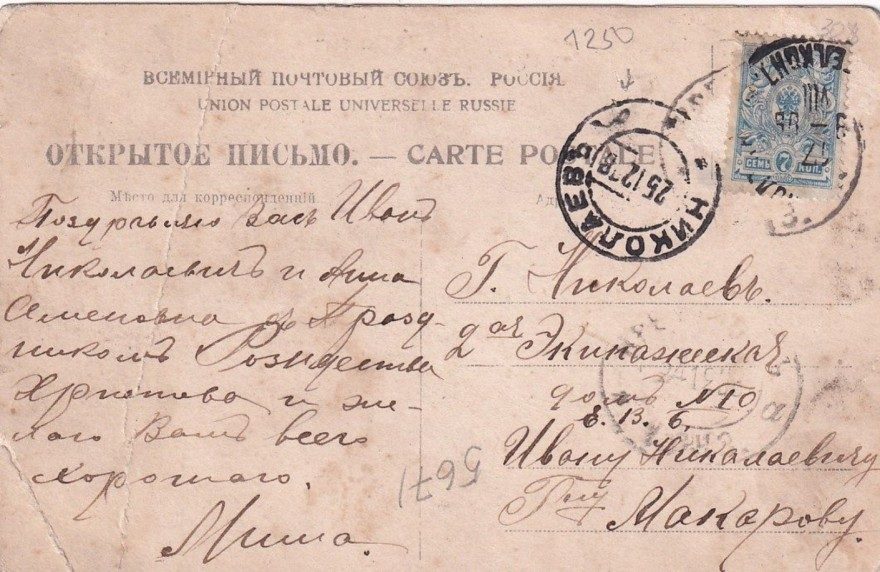 1250
328
ВСЕМІРНЫЙ ПОЧТОВЫЙ СОЮЗЪ. РОССІЯ.
UNION POSTALE UNIVERSELLE RUSSIE
ОТКРЫТОЕ ПИСЬМО. — CARTE POSTALE
Мѣсто для корреспонденціи
СЕМЬ 7 КОП.
НИКОЛАЕВЪ
25 12
Поздравляю Васъ Иванъ
Николаевичъ и Анна
Семеновна с Празд-
никомъ Рождества
Христова и же-
лаю Вамъ всего
хорошаго.
Миша.
Г. Николаевъ.
2ая Экипажеская
домъ №10
Е. В. б.
Ивану Николаевичу
Гну Макарову.
567